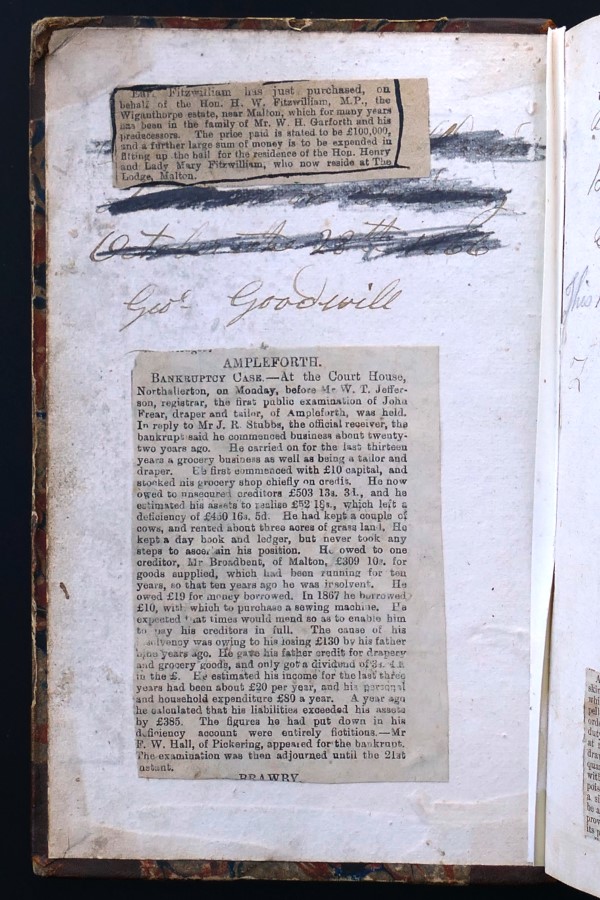 Earl Fitzwilliam has just purchased, on
behalf of the Hon. H. W. Fitzwilliam, M.P., the
Wiganthorpe estate, near Malton, which for many years
has been in the family of Mr. W. H. Garforth and his
predecessors. The price paid is stated to be £100,000,
and a further large sum of money is to be expended in
fitting up the hall for the residence of the Hon. Henry
and Lady Mary Fitzwilliam, who now reside at The
Lodge, Malton.
October the 28th
Geo. Goodwill
This
AMPLEFORTH.
BANKRUPTCY CASE.—At the Court House,
Northallerton, on Monday, before Mr W. T. Jeffer-
son, registrar, the first public examination of John
Frear, draper and tailor, of Ampleforth, was held.
In reply to Mr J. R. Stubbs, the official receiver, the
bankrupt said he commenced business about twenty-
two years ago. He carried on for the last thirteen
years a grocery business as well as being a tailor and
draper. He first commenced with £10 capital, and
stocked his grocery shop chiefly on credit. He now
owed to unsecured creditors £503 13s. 3d., and he
estimated his assets to realise £52 18s., which left a
deficiency of £450 16s. 5d. He had kept a couple of
cows, and rented about three acres of grass land. He
kept a day book and ledger, but never took any
steps to ascertain his position. He owed to one
creditor, Mr Broadbent, of Malton, £309 10s. for
goods supplied, which had been running for ten
years, so that ten years ago he was insolvent. He
owed £19 for money borrowed. In 1867 he borrowed
£10, with which to purchase a sewing machine. He
expected that times would mend so as to enable him
to pay his creditors in full. The cause of his
insolvency was owing to his losing £130 by his father
years ago. He gave his father credit for drapery
and grocery goods, and only got a dividend of 3s.
in the £. He estimated his income for the last three
years had been about £20 per year, and his personal
and household expenditure £80 a year. A year ago
he calculated that his liabilities exceeded his assets
by £385. The figures he had put down in his
deficiency account were entirely fictitious.—Mr
F. W. Hall, of Pickering, appeared for the bankrupt.
The examination was then adjourned until the 21st
instant.
BRAWBY.